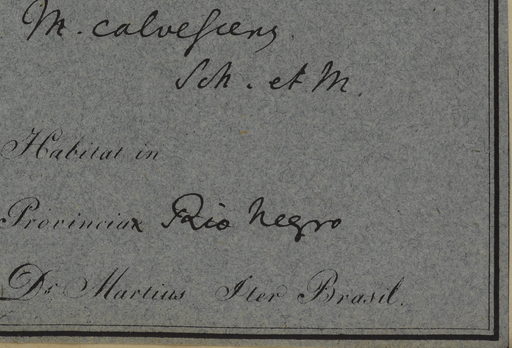 M. calvescens
Sch. et M.
Habitat in
Provinciae Rio Negro
Dr Martius Iter Brasil.